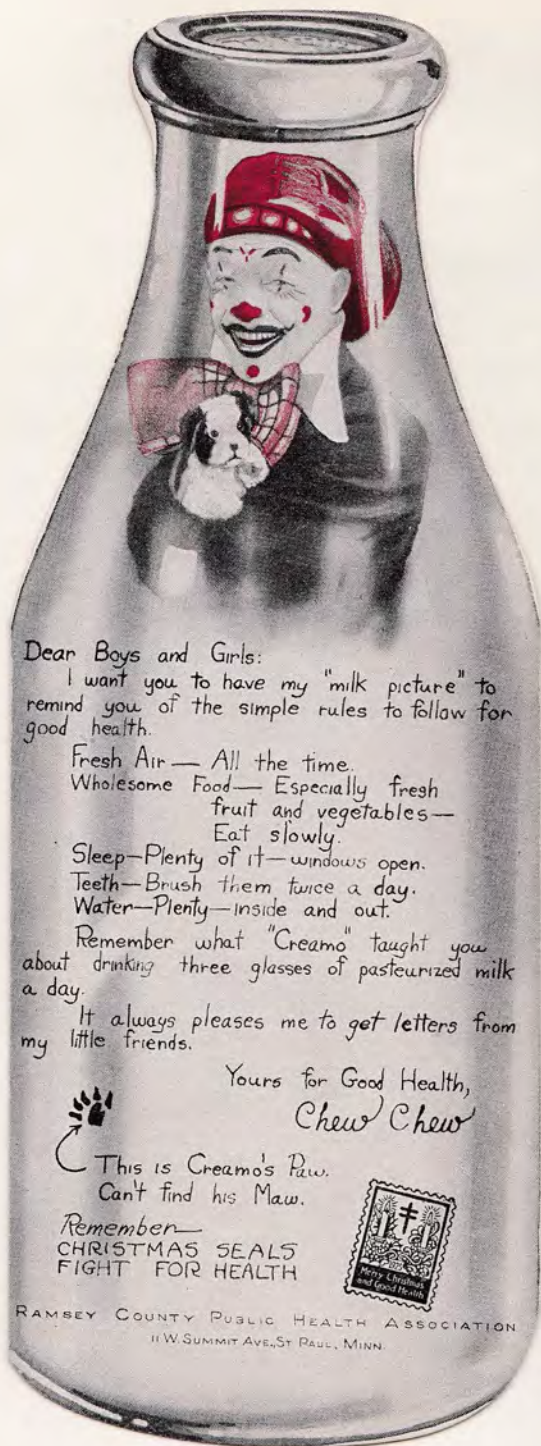 Dear Boys and Girls:
I want you to have my "milk picture" to
remind you of the simple rules to follow for
good health.
Fresh Air — All the time.
Wholesome Food — Especially fresh
fruit and vegetables —
Eat slowly.
Sleep—Plenty of it—windows open.
Teeth—Brush them twice a day.
Water—Plenty—inside and out.
Remember what "Creamo" taught you
about drinking three glasses of pasteurized milk
a day.
It always pleases me to get letters from
my little friends.
Yours for Good Health,
Chew Chew
This is Creamo's Paw.
Can't find his Maw.
Remember—
CHRISTMAS SEALS
FIGHT FOR HEALTH
Merry Christmas
and Good Health
RAMSEY COUNTY PUBLIC HEALTH ASSOCIATION
11 W. SUMMIT AVE., ST PAUL, MINN.